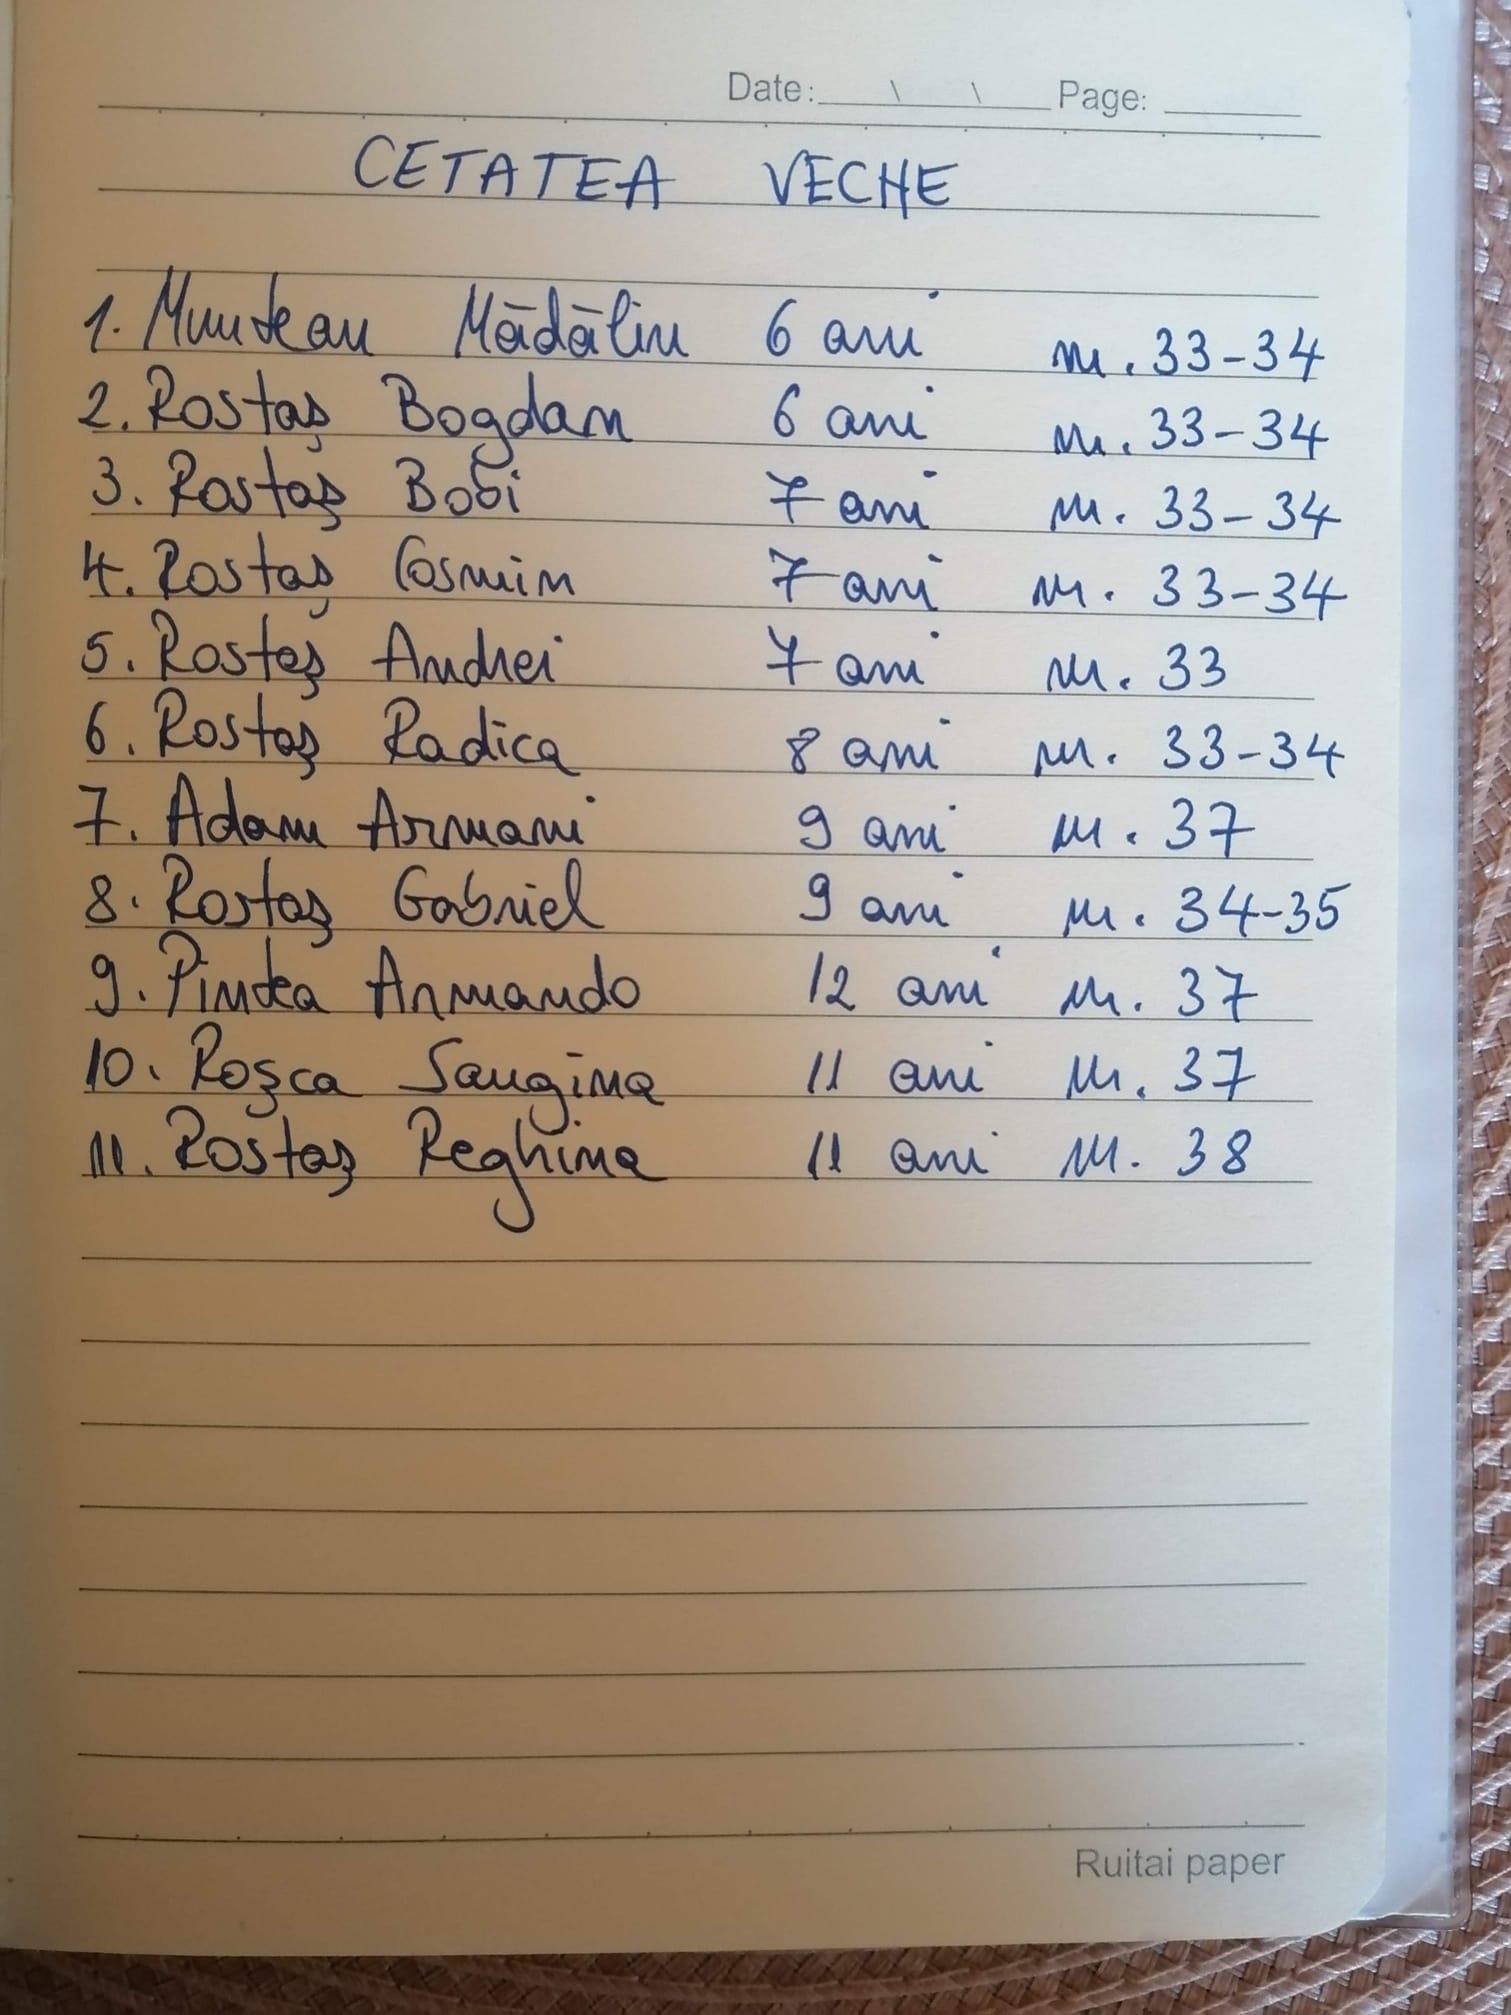 Date: \ \ Page:
CETATEA VECHE
1. Muntean Mădălin 6 ani nr. 33-34
2. Rostaș Bogdan 6 ani nr. 33-34
3. Rostaș Bobi 7 ani nr. 33-34
4. Rostaș Cosmin 7 ani nr. 33-34
5. Rostaș Andrei 7 ani nr. 33
6. Rostaș Radica 8 ani nr. 33-34
7. Adam Armani 9 ani nr. 37
8. Rostaș Gabriel 9 ani nr. 34-35
9. Pintea Armando 12 ani nr. 37
10. Roșca Saugina 11 ani nr. 37
11. Rostaș Reghina 11 ani nr. 38
Ruitai paper